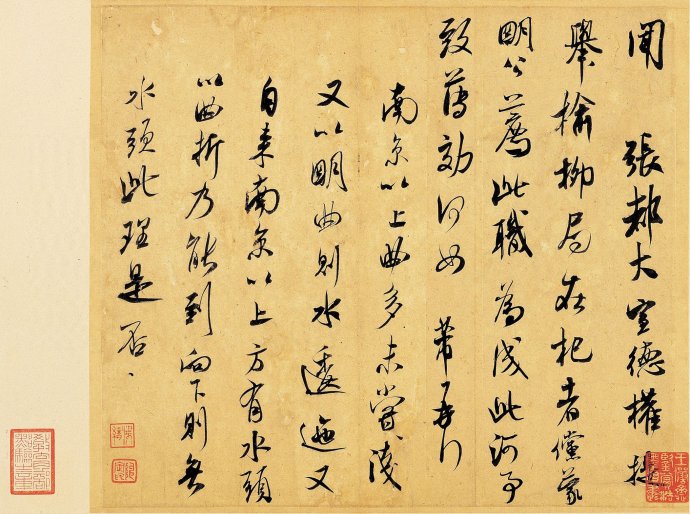 聞　張都大宣德權提
舉榆柳局在杞者儻蒙
明公薦此職為成此河事
致薄効何如　芾再行
南京以上曲多未嘗淺
又以明曲則水逶迤又
自来南京以上方有水頭
以曲折乃能到向下則無
水頭此理是否